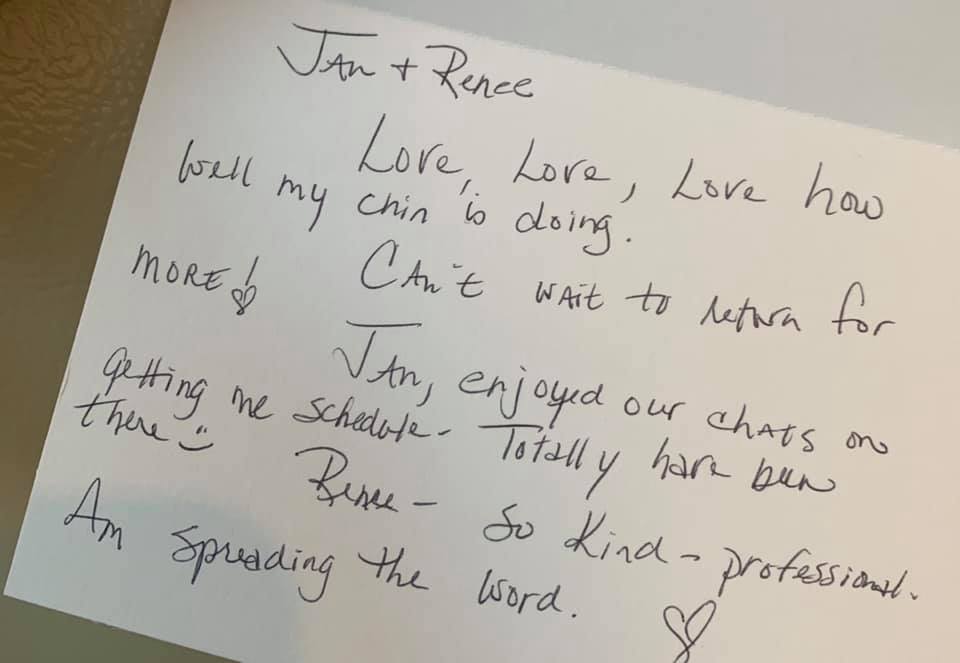 JAn + Renee
Love, Love, Love how
well my chin is doing.
CAn't wAit to return for
MORE!
JAn, enjoyed our chATS on
getting me schedule - Totally have been
there
Renee - So Kind - professional.
Am spreading the word.